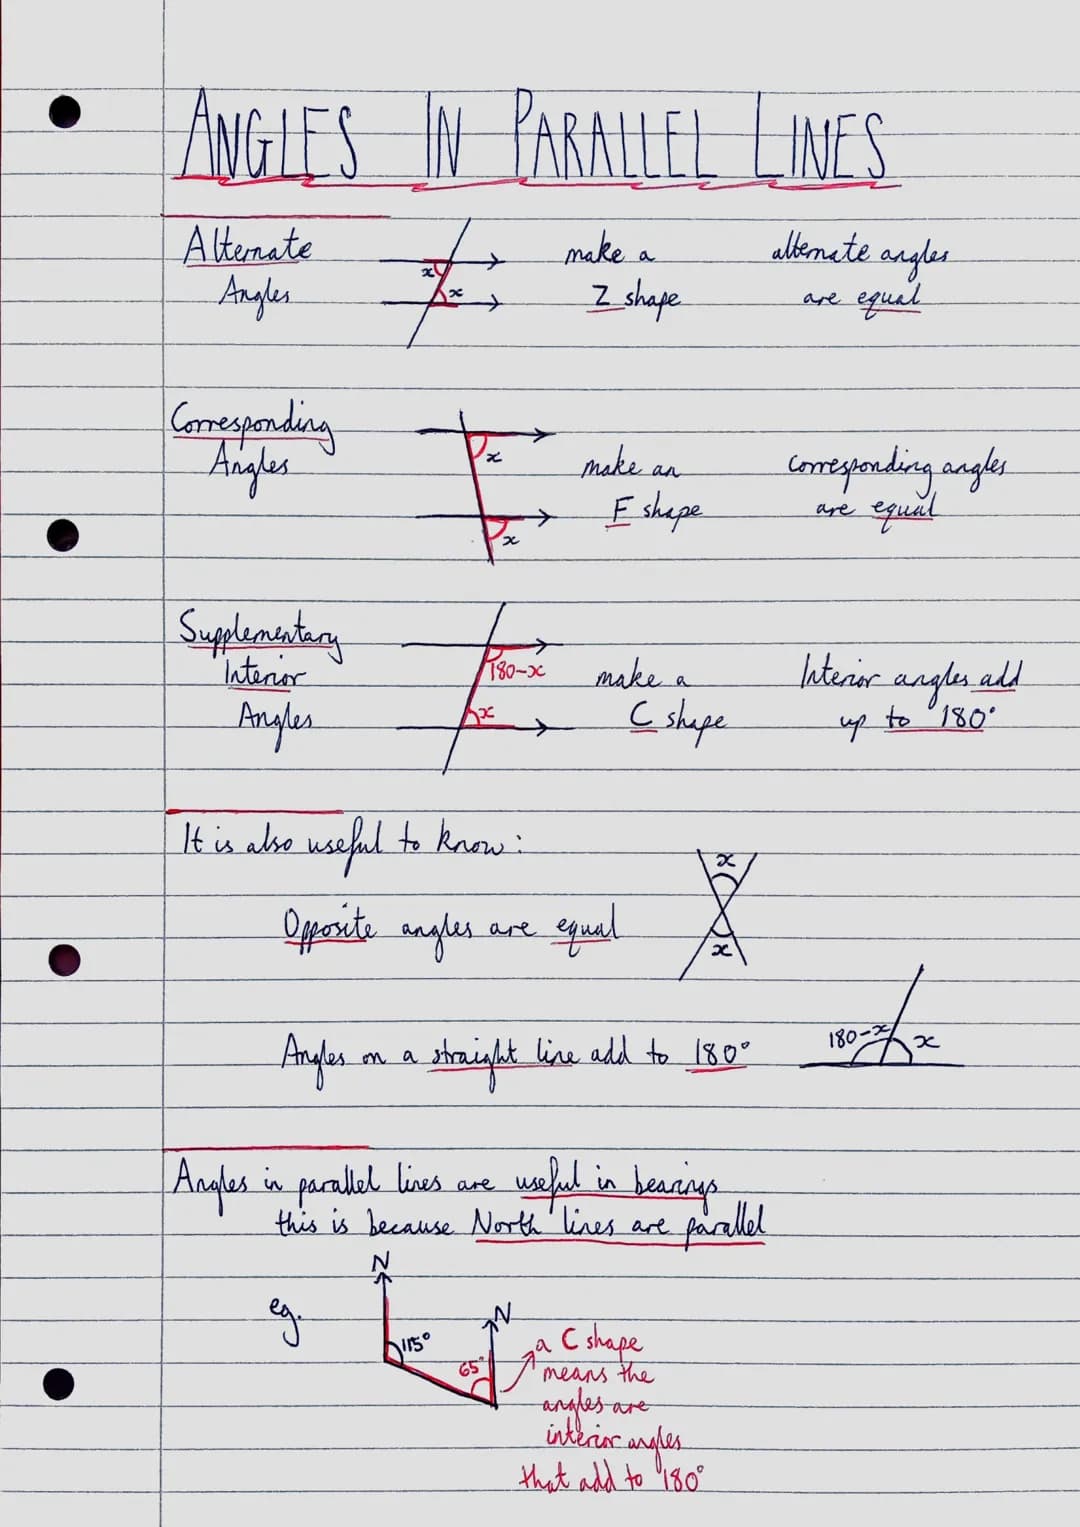 ANGLES IN PARALLEL LINES
Alternate
Angles
x
x
make a
Z shape
alternate angles
are equal
Corresponding
Angles
x
x
make an
F shape
corresponding angles
are equal
Supplementary
Interior
Angles
180-x
x
make a
C shape
Interior angles add
up to 180°
It is also useful to know:
x
Opposite angles are equal
x
Angles on a straight line add to 180°
180-x
x
Angles in parallel lines are useful in bearings
this is because North lines are parallel
eg.
N
N
115°
65°
a C shape
means the
angles are
interior angles
that add to 180°